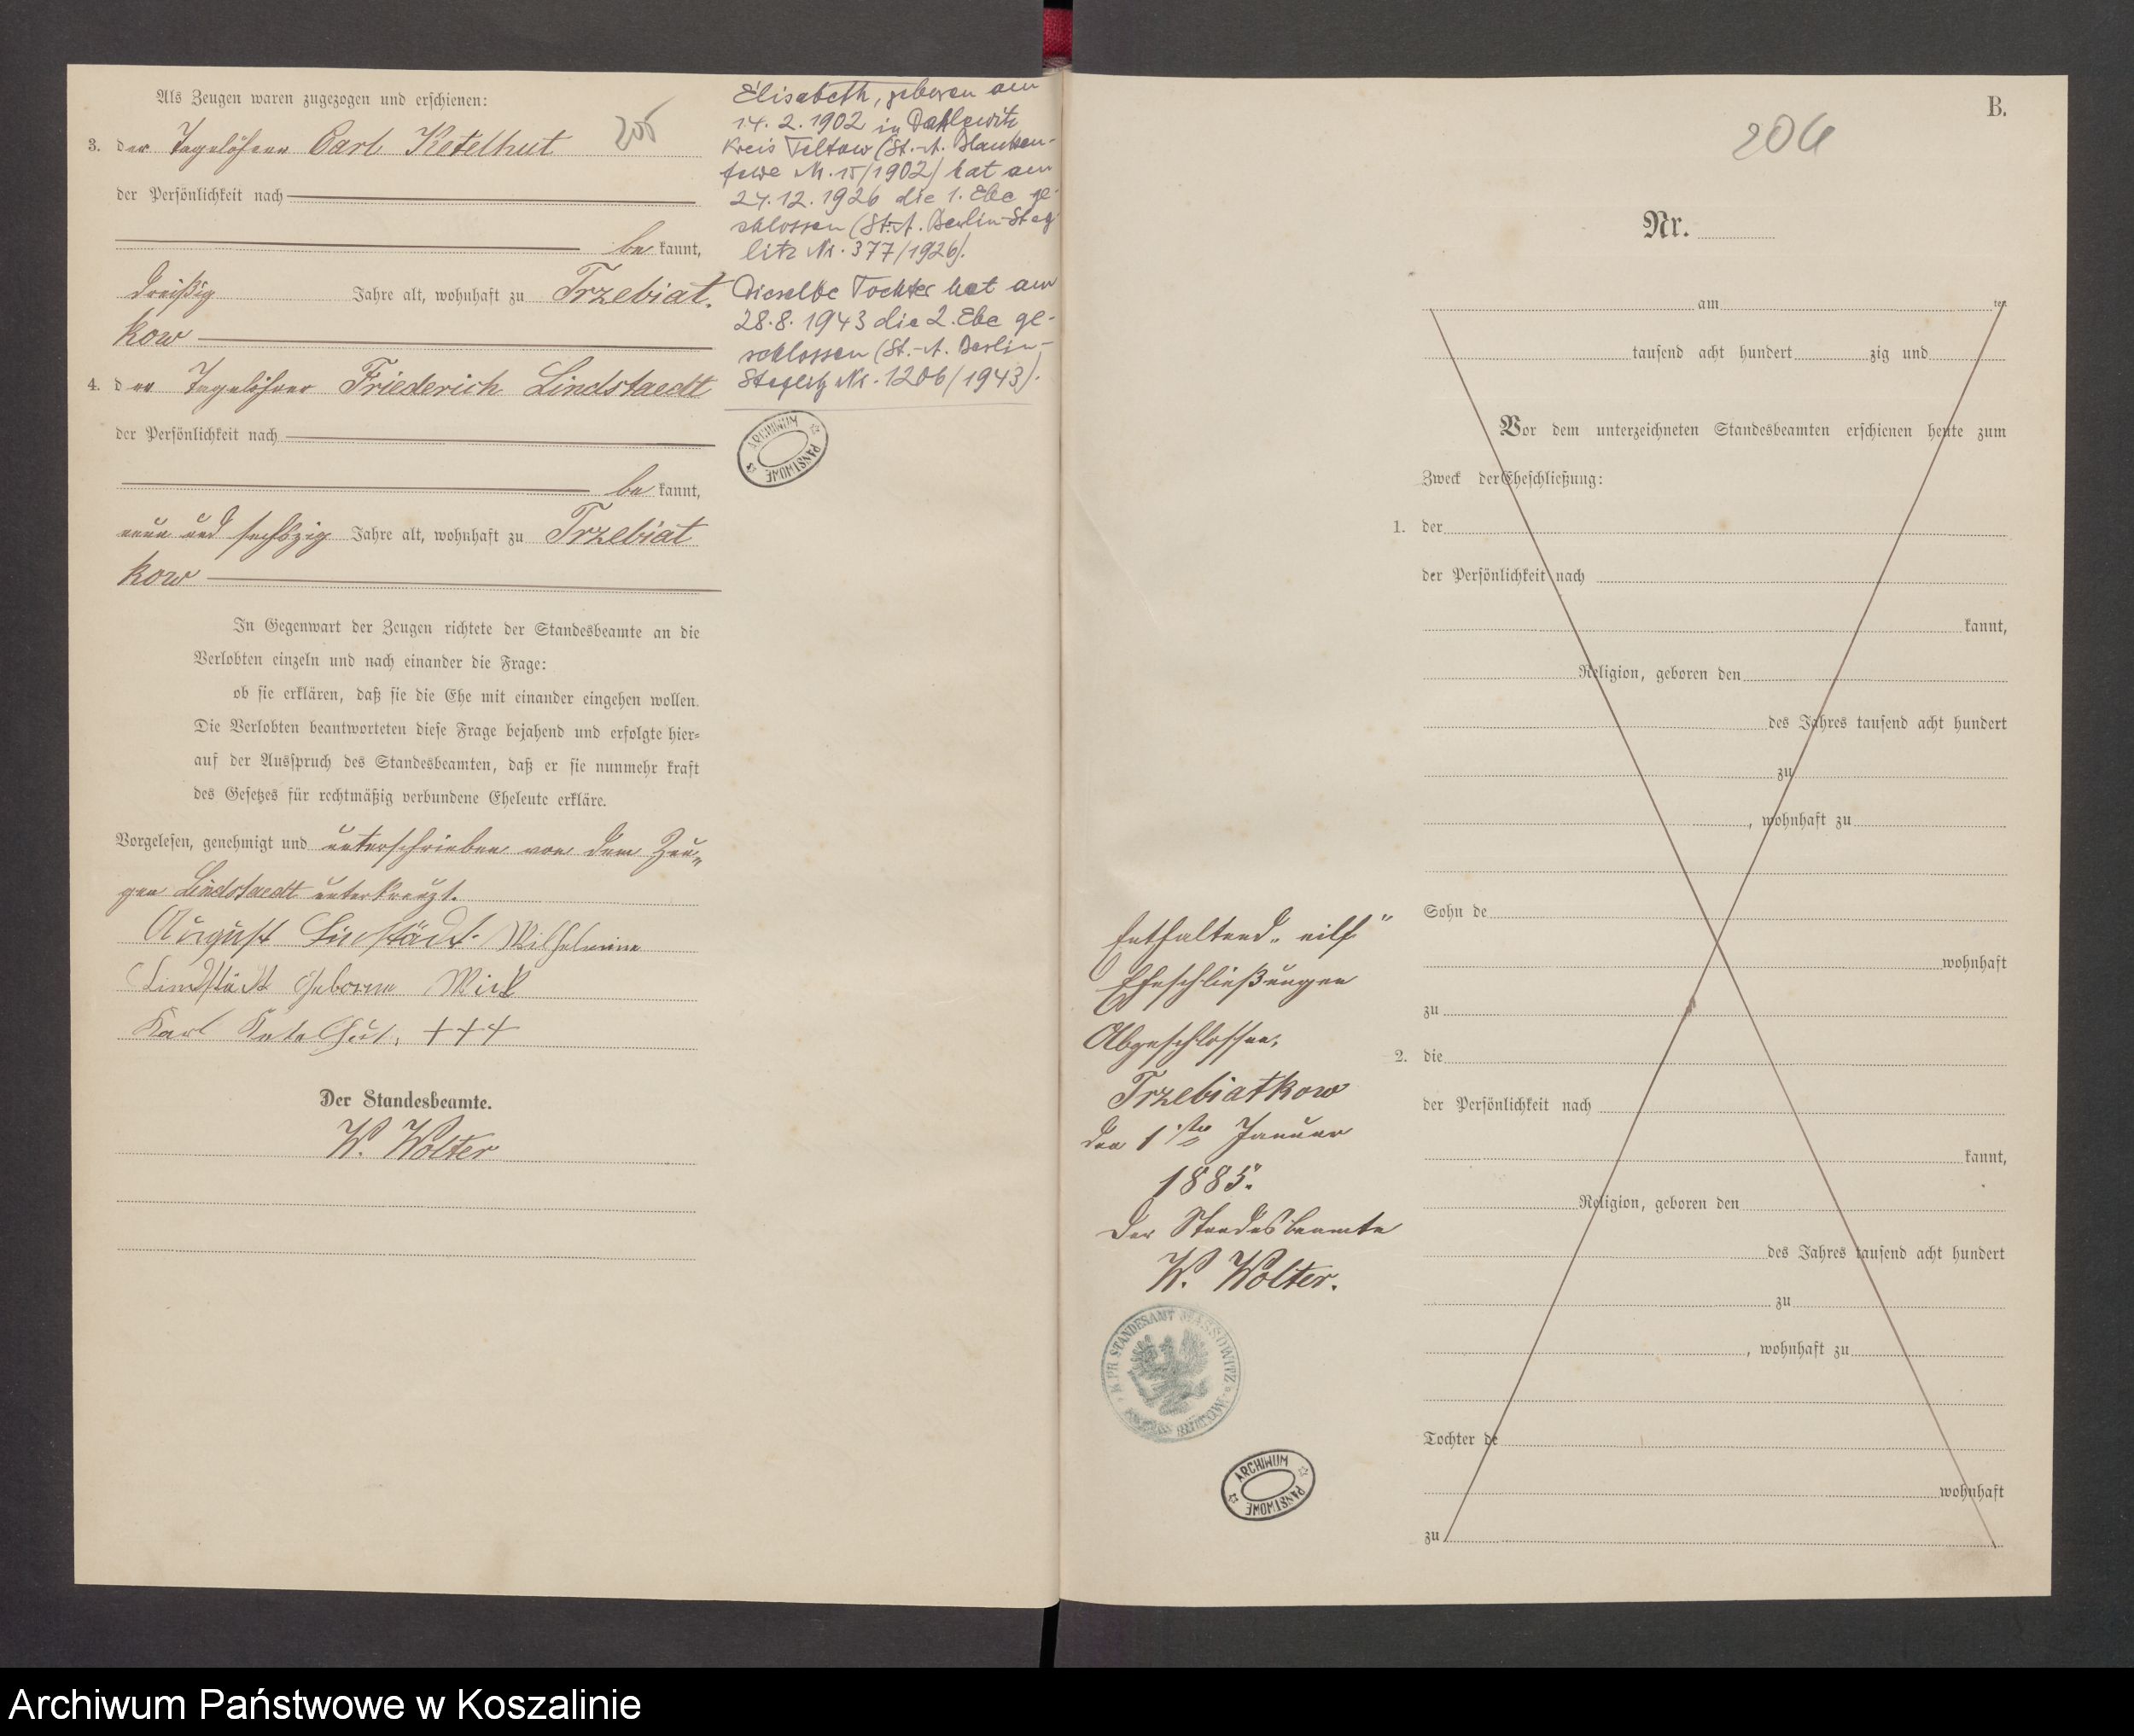 Als Zeugen waren zugezogen und erschienen:
205
3. der Tagelöhner Carl Ketelhut
der Persönlichkeit nach
bekannt,
dreißig Jahre alt, wohnhaft zu Trzebiat-
kow
4. der Tagelöhner Friederich Lindstaedt
der Persönlichkeit nach
bekannt,
neun und sechszig Jahre alt, wohnhaft zu Trzebiat
kow
In Gegenwart der Zeugen richtete der Standesbeamte an die
Verlobten einzeln und nach einander die Frage:
ob sie erklären, daß sie die Ehe mit einander eingehen wollen.
Die Verlobten beantworteten diese Frage bejahend und erfolgte hier-
auf der Ausspruch des Standesbeamten, daß er sie nunmehr kraft
des Gesetzes für rechtmäßig verbundene Eheleute erkläre.
Vorgelesen, genehmigt und unterschrieben von dem Zeu-
gen Lindstaedt unterkreuzt.
August Linstädt Wilhelmine
Lindstädt geborne Mick
Karl Ketelhut, +++
Der Standesbeamte.
W. Wolter
Elisabeth, geboren am
14.2.1902 in Dahlewitz
Kreis Teltow (St.-A. Blanken-
felde Nr. 15/1902) hat am
24.12.1926 die 1. Ehe ge-
schlossen (St.-A. Berlin-Steg
litz Nr. 377/1926).
Dieselbe Tochter hat am
28.8.1943 die 2. Ehe ge-
schlossen (St.-A. Berlin-
Steglitz Nr. 1206/1943).
ARCHIWUM PAŃSTWOWE
Enthaltend "eilf"
Eheschließungen
Abgeschlossen,
Trzebiatkow
den 1ten Januar
1885.
Der Standesbeamte
W. Wolter.
K. PR. STANDESAMT MASSOWITZ
ARCHIWUM PAŃSTWOWE
B.
206
Nr.
am ten
tausend acht hundert zig und
Vor dem unterzeichneten Standesbeamten erschienen heute zum
Zweck der Eheschließung:
1. der
der Persönlichkeit nach
kannt,
Religion, geboren den
des Jahres tausend acht hundert
zu
, wohnhaft zu
Sohn de
wohnhaft
zu
2. die
der Persönlichkeit nach
kannt,
Religion, geboren den
des Jahres tausend acht hundert
zu
, wohnhaft zu
Tochter de
wohnhaft
zu
Archiwum Państwowe w Koszalinie